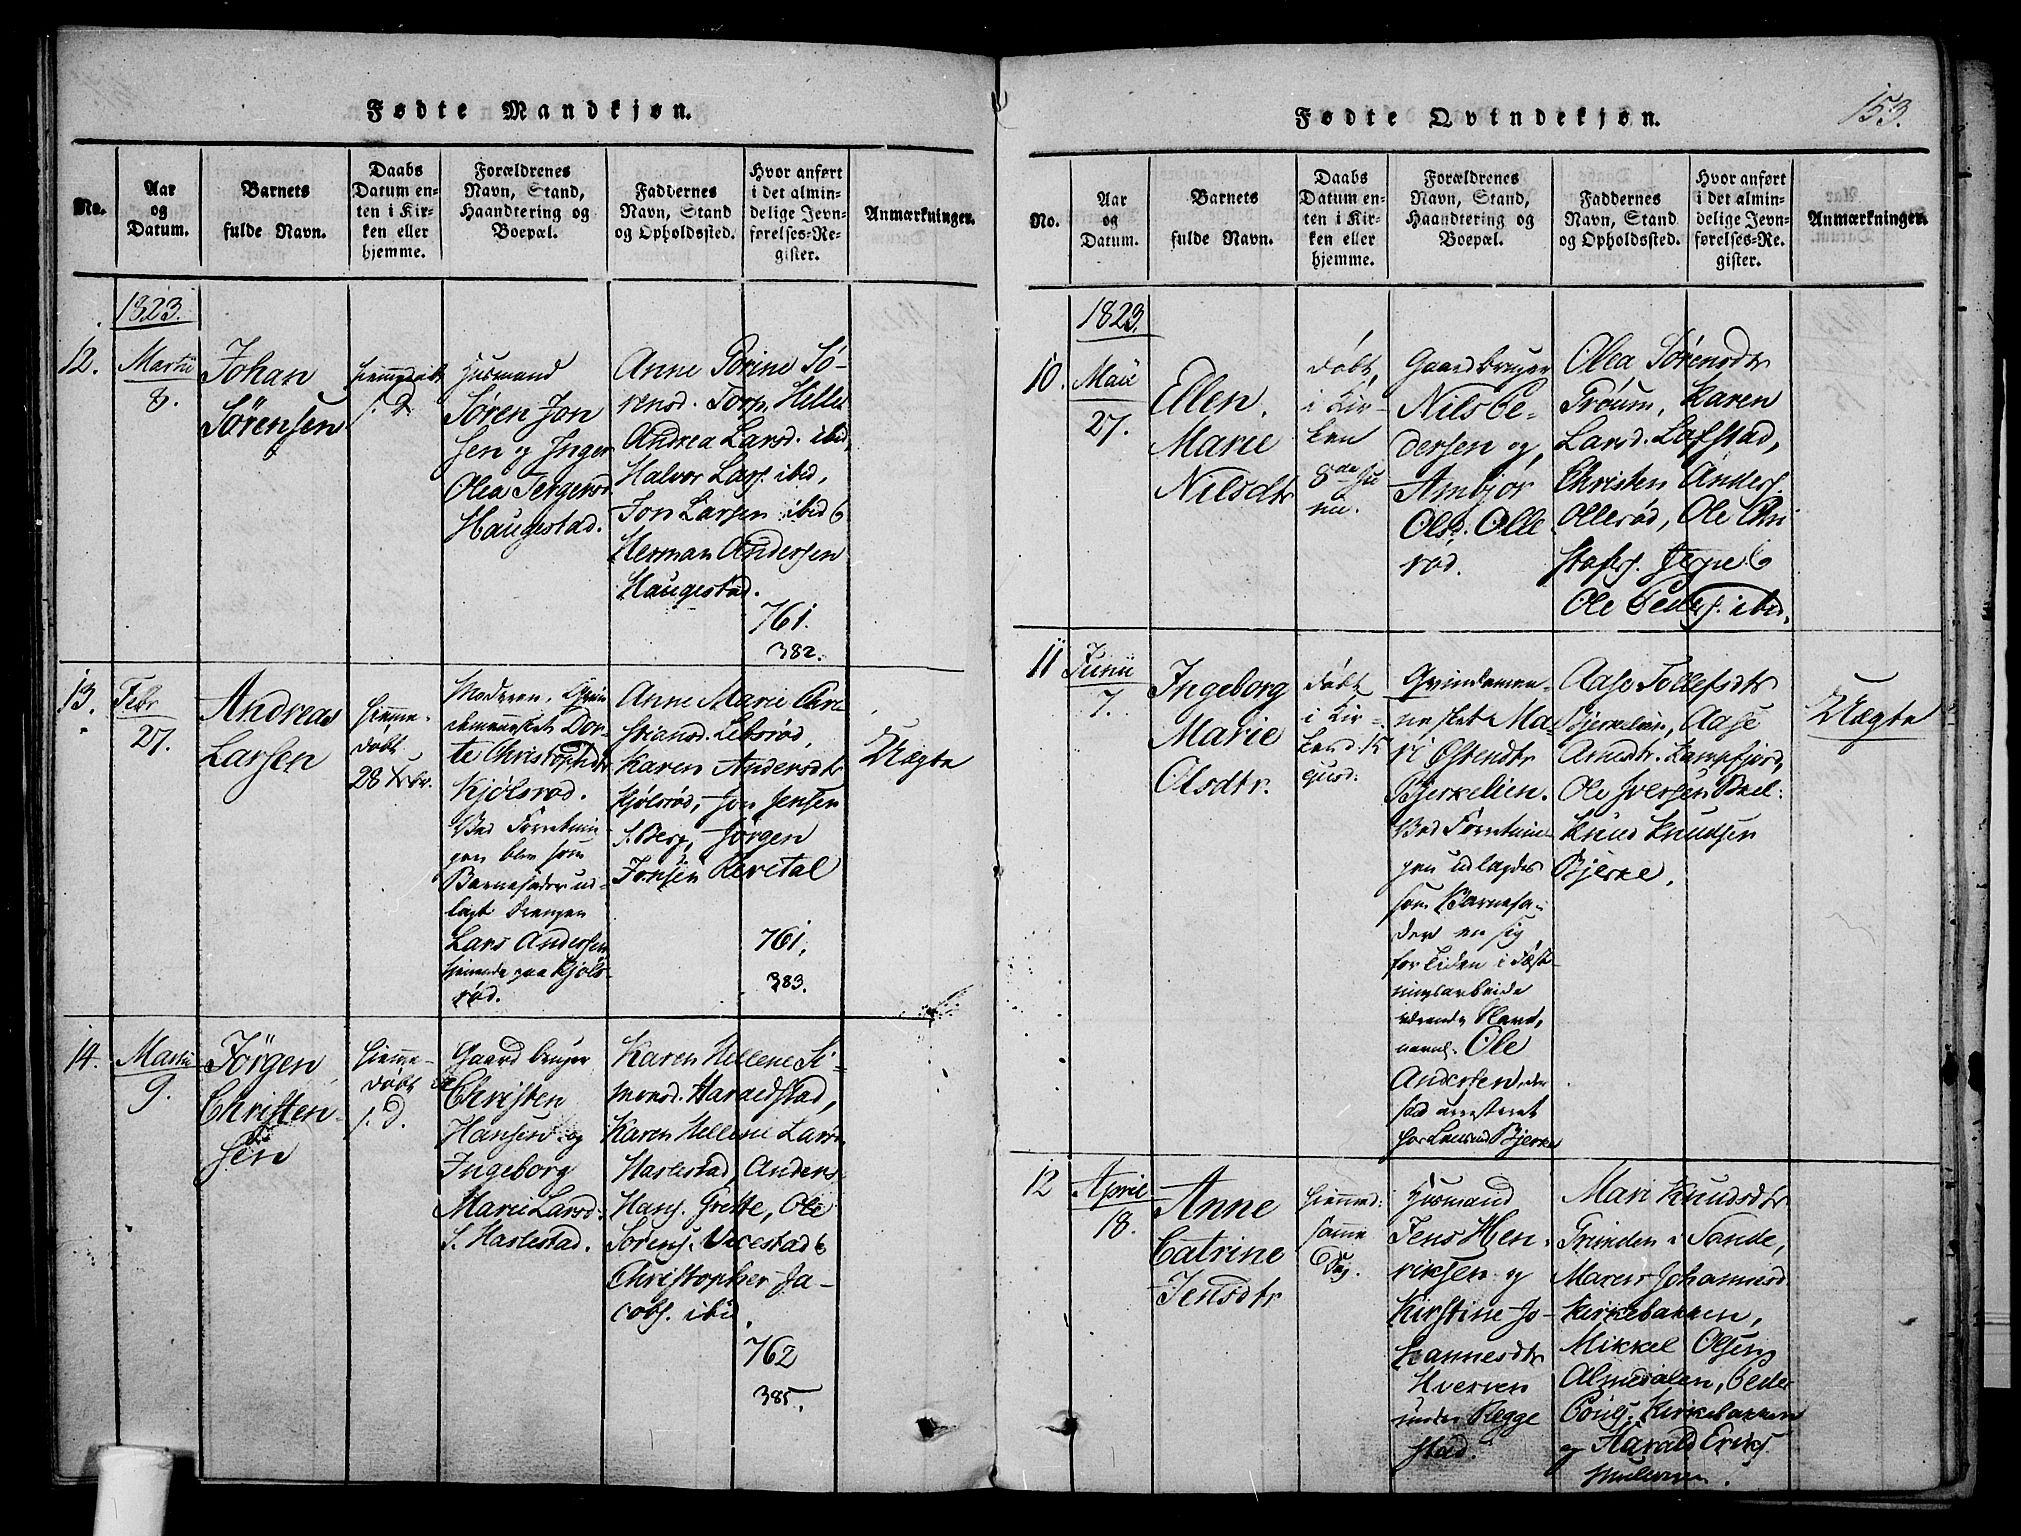 Fødte Mandkjøn.
No.
Aar
og
Datum.
Barnets
fulde Navn.
Daabs
Datum en-
ten i Kir-
ken eller
hjemme.
Forældrenes
Navn, Stand,
Haandtering og
Boepæl.
Faddernes
Navn, Stand
og Opholdssted.
Hvor anført
i det almin-
delige Jevn-
førelses-Re-
gister.
Anmærkninger.
1823.
12.
Martii
8.
Johan
Sørensen
s. D
Husmand
Søren Jon
sen og Inger
Olea
Haugestad.
Anne Torine Sø-
rensd. Torp, Helle
Andrea Larsd. ibid,
Halvor Lars. ibid,
Jon Larsen ibid &
Herman Andersen
Haugestad.
761.
382.
13.
Febr
27.
Andreas
Larsen
hjemme-
døbt
28 Febr.
Moderen, Qvin
demennesket Dor-
te Christophdtr
Kjølsrød.
Ved Forretnin-
gen blev som
Barnefader ud-
lagt Drengen
Lars Andersen
tjenende paa Kjøls-
rød.
Anne Marie Chri
stiansd.
Karen Andersdtr
Kjølsrød, Jon Jensen
S. Berg, Jørgen
Jonsen Revetal
761.
383.
Uægte
14.
Martii
9.
Jørgen
Christen-
sen
hjemme-
døbt
s. D.
Gaardbruger
Christen
Hansen og
Ingeborg
Marie Larsd.
S. Haslestad.
Karen Hellene Si-
monsd. Haraldstad,
Karen Hellene Larsd
Haslestad, Anders
Hans. Grette, Ole
Sørens.
Christopher Ja-
cobs. ibid.
762
385.
153.
Fødte Qvindekjøn.
No.
Aar
og
Datum.
Barnets
fulde Navn.
Daabs
Datum en-
ten i Kir-
ken eller
hjemme.
Forældrenes
Navn, Stand,
Haandtering og
Boepæl.
Faddernes
Navn, Stand
og Opholdssted.
Hvor anført
i det almin-
delige Jevn-
førelses-Re-
gister.
Anmærkninger.
1823.
10.
Maii
27.
Ellen
Marie
Nilsdtr
døbt
i Kir-
ken
8de Ju
nii.
Gaardbruger
Nils Pe-
dersen og
Ambjør
Olsd. Olle
rød.
Olea Sørensdtr
Karen
Larsd. Lofstad,
Christen Anders.
Ollerød, Ole Chri
stofs. &
Ole Peders. ibid.
11
Junii
7.
Ingeborg
Marie
Olsdtr.
døbt
i Kir-
Qvindemen-
nesket Ma-
ri Østendtr
Bjerkelien.
Ved Forretnin
gen udlagdes
som Barnefa-
der en sig
for Tiden i Fæst-
ningsarbeide
værende Mand,
navnl. Ole
Andersen, der
sad arresteret
hos Lensmd Bjerke
Aase Tollefsdtr
Bjerkelien, Aase
Arnesdtr.
Ole Iversen
Knud Knudsen
Bjerke.
Uægte
12
April
18.
Anne
Catrine
Jensdtr
hjemmed:
samme
Dag.
Husmand
Jens Hen-
riksen og
Kirstine Jo-
hannesdtr
Hverven
under Regge
stad.
Mari Knudsdtr
i Sande,
Maren Johannesd
Kirkebakken,
Mikkel Olsen
Almedalen, Peder
Pouls. Kirkebakken
og Harald Eriks.